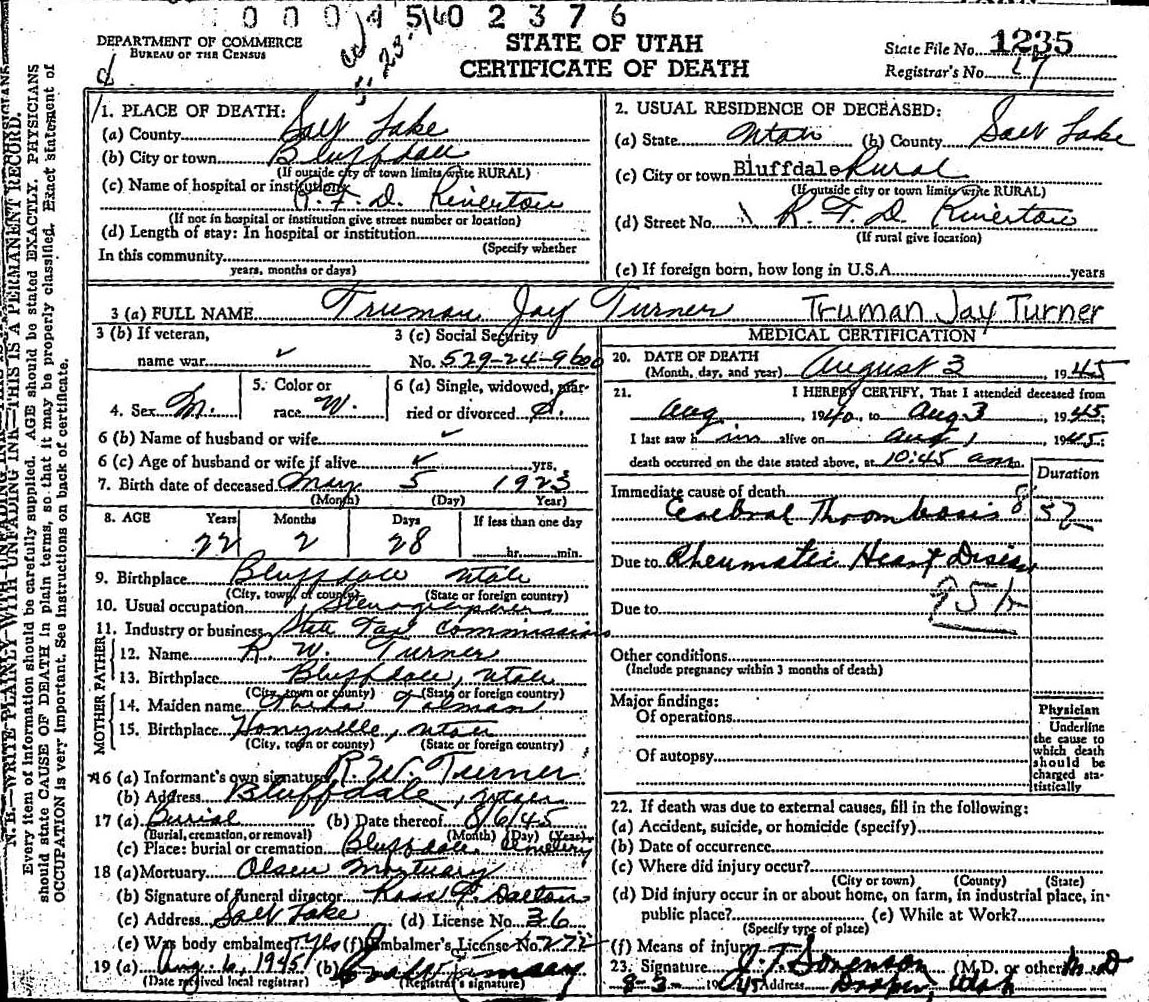 0 0 0 4 5 40 2 3 7 6
DEPARTMENT OF COMMERCE
BUREAU OF THE CENSUS
STATE OF UTAH
CERTIFICATE OF DEATH
State File No. 1235
Registrar's No. 17
N.B.—WRITE PLAINLY WITH UNFADING INK—THIS IS A PERMANENT RECORD.
Every item of information should be carefully supplied. AGE should be stated EXACTLY. PHYSICIANS
should state CAUSE OF DEATH in plain terms, so that it may be properly classified. Exact statement of
OCCUPATION is very important. See instructions on back of certificate.
1. PLACE OF DEATH:
(a) County Salt Lake
(b) City or town Bluffdale
(If outside city or town limits write RURAL)
(c) Name of hospital or institution
R. F. D. Riverton
(If not in hospital or institution give street number or location)
(d) Length of stay: In hospital or institution
(Specify whether
In this community
years, months or days)
2. USUAL RESIDENCE OF DECEASED:
(a) State Utah (b) County Salt Lake
(c) City or town Bluffdale Rural
(If outside city or town limits write RURAL)
(d) Street No. R. F. D. Riverton
(If rural give location)
(e) If foreign born, how long in U.S.A. years
3 (a) FULL NAME Truman Jay Turner Truman Jay Turner
3 (b) If veteran,
name war ✓
3 (c) Social Security
No. 529-24-9600
4. Sex M.
5. Color or
race W.
6 (a) Single, widowed, mar-
ried or divorced S.
6 (b) Name of husband or wife ✓
6 (c) Age of husband or wife if alive ✓ yrs.
7. Birth date of deceased May 5 1923
(Month) (Day) Year)
8. AGE Years Months Days If less than one day
22 2 28 hr. min.
9. Birthplace Bluffdale Utah
(City, town or county) (State or foreign country)
10. Usual occupation Stenographer
11. Industry or business State Tax Commission
FATHER
12. Name R. W. Turner
13. Birthplace Bluffdale, Utah
(City, town or county) (State or foreign country)
MOTHER
14. Maiden name
15. Birthplace Honeyville, Utah
(City, town or county) (State or foreign country)
16 (a) Informant's own signature R. W. Turner
(b) Address Bluffdale, Utah
17 (a) Burial (b) Date thereof 8/6/45
(Burial, cremation, or removal) (Month) (Day) (Year)
(c) Place: burial or cremation Bluffdale Cemetery
18 (a) Mortuary Olsen Mortuary
(b) Signature of funeral director
(c) Address Salt Lake (d) License No. 36
(e) Was body embalmed? Yes (f) Embalmer's License No. 272
19 (a) Aug. 6, 1945 (b)
(Date received local registrar) (Registrar's signature)
MEDICAL CERTIFICATION
20. DATE OF DEATH
(Month, day, and year) August 3 1945
21. I HEREBY CERTIFY, That I attended deceased from
Aug 1940, to Aug 3 1945.
I last saw him alive on Aug 1 1945;
death occurred on the date stated above, at 10:45 am.
Duration
Immediate cause of death
Cerebral Thrombosis
Due to Rheumatic Heart Disease
Due to
95b
Other conditions
(Include pregnancy within 3 months of death)
Major findings:
Of operations
Of autopsy
Physician
Underline
the cause to
which death
should be
charged sta-
tistically
22. If death was due to external causes, fill in the following:
(a) Accident, suicide, or homicide (specify)
(b) Date of occurrence
(c) Where did injury occur?
(City or town) (County) (State)
(d) Did injury occur in or about home, on farm, in industrial place, in-
public place? (e) While at Work?
(Specify type of place)
(f) Means of injury
23. Signature J. T. Sorenson (M.D. or other) M D
8-3- 1945 Address Draper, Utah